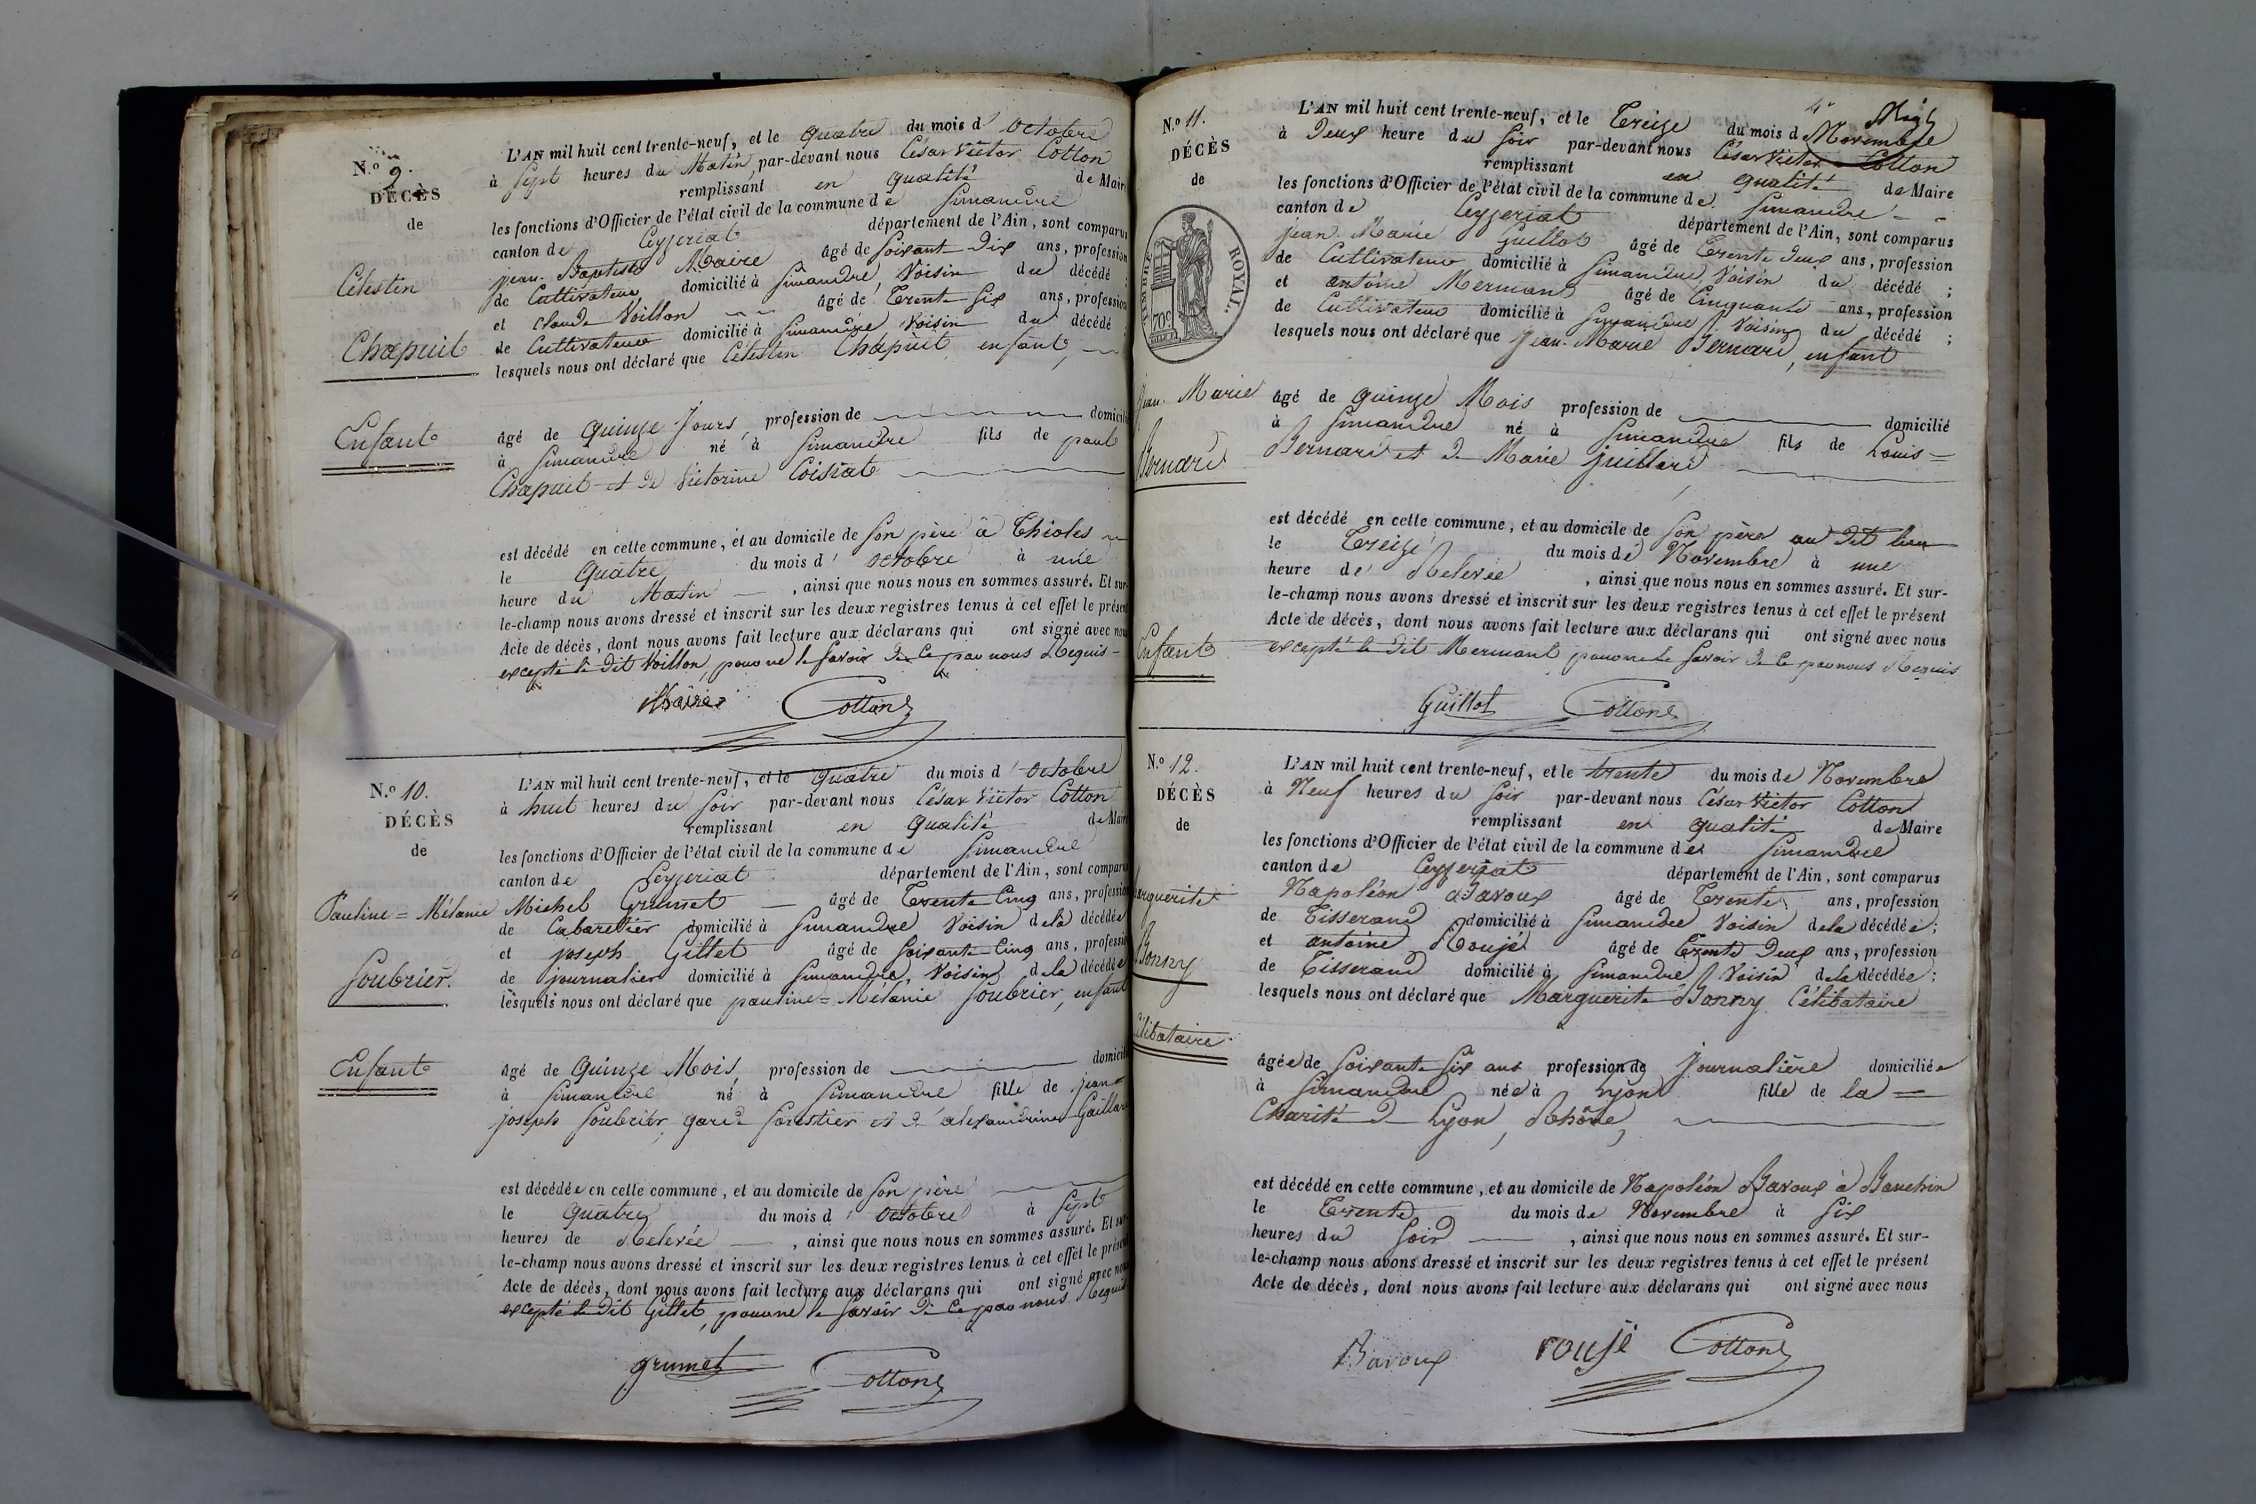 N.o 9.
DÉCÈS
de
Célestin
Chapuit
Enfant
L'AN mil huit cent trente-neuf, et le quatre du mois d' Octobre
à Sept heures du Matin, par-devant nous César Victor Cotton
remplissant en qualité de Mair
les fonctions d'Officier de l'état civil de la commune de Simandre
canton de Ceyzeriat département de l'Ain, sont comparus
jean-Baptiste Maire âgé de Soixant Dix ans, profession
de Cultivateur domicilié à Simandre Voisin du décédé ;
et claude Voillon âgé de Trente Six ans, profession
de Cultivateur domicilié à Simandre Voisin du décédé ;
lesquels nous ont déclaré que Célestin Chapuit, enfant,
âgé de quinze Jours, profession de domicili
à Simandre né à Simandre fils de paul
Chapuit et de Victorine Coisiat
est décédé en cette commune, et au domicile de Son père à Thioles
le Quatre du mois d' octobre à une
heure du Matin , ainsi que nous nous en sommes assuré. Et sur-
le-champ nous avons dressé et inscrit sur les deux registres tenus à cet effet le présent
Acte de décès, dont nous avons fait lecture aux déclarans qui ont signé avec nous
excepté le dit Voillon, pour ne le Savoir de ce par nous Requis-
Maire Cotton
N.o 10.
DÉCÈS
de
Pauline = Mélanie
Soubrier.
Enfant
L'AN mil huit cent trente-neuf, et le quatre du mois d' Octobre
à huit heures du Soir par-devant nous César Victor Cotton
remplissant en qualité de Maire
les fonctions d'Officier de l'état civil de la commune de Simandre
canton de Ceyzeriat département de l'Ain, sont comparus
Michel Grumet âgé de Trente Cinq ans, profession
de Cabaretier domicilié à Simandre Voisin de la décédée
et joseph Gillet âgé de Soixante Cinq ans, profession
de journalier domicilié à Simandre, Voisin de la décédée
lesquels nous ont déclaré que pauline = Mélanie Soubrier, enfant
âgé de Quinze Mois, profession de domicili
à Simandre né à Simandre fille de jean
joseph Soubrier, garde forestier et de alexandrine Gaillard
est décédée en cette commune, et au domicile de Son père
le Quatre du mois d' octobre à Sept
heures de Relevée , ainsi que nous nous en sommes assuré. Et sur-
le-champ nous avons dressé et inscrit sur les deux registres tenus à cet effet le présent
Acte de décès, dont nous avons fait lecture aux déclarans qui ont signé avec nous
excepté le dit Gillet, pour ne le Savoir de ce par nous Requis
grumet Cotton
N.o 11.
DÉCÈS
de
TIMBRE ROYAL.
70c
jean Marie
Bernard
Enfant
L'AN mil huit cent trente-neuf, et le Treize du mois de Novembre
à Deux heure du Soir par-devant nous César Victor Cotton
remplissant en qualité de Maire
les fonctions d'Officier de l'état civil de la commune de Simandre
canton de Ceyzeriat département de l'Ain, sont comparus
jean Marie Guillot âgé de Trente Deux ans, profession
de Cultivateur domicilié à Simandre Voisin du décédé ;
et antoine Mermant âgé de Cinquante ans, profession
de Cultivateur domicilié à Simandre Voisin du décédé ;
lesquels nous ont déclaré que jean-Marie Bernard, enfant
âgé de quinze Mois profession de domicilié
à Simandre né à Simandre fils de Louis =
Bernard et de Marie juillard
est décédé en cette commune, et au domicile de Son père au dit lieu
le Treize du mois de Novembre à une
heure de Relevée , ainsi que nous nous en sommes assuré. Et sur-
le-champ nous avons dressé et inscrit sur les deux registres tenus à cet effet le présent
Acte de décès, dont nous avons fait lecture aux déclarans qui ont signé avec nous
excepté le dit Mermant pour ne le Savoir de ce par nous Requis
Guillot Cotton
N.o 12.
DÉCÈS
de
Marguerite
Bonny
Célibataire
L'AN mil huit cent trente-neuf, et le trente du mois de Novembre
à Neuf heures du Soir par-devant nous César Victor Cotton
remplissant en qualité de Maire
les fonctions d'Officier de l'état civil de la commune de Simandre
canton de Ceyzeriat département de l'Ain, sont comparus
Napoléon Bavoux âgé de Trente ans, profession
de Tisserand domicilié à Simandre Voisin de la décédée ;
et antoine Roujé âgé de Trente Deux ans, profession
de Tisserand domicilié à Simandre Voisin de la décédée ;
lesquels nous ont déclaré que Marguerite Bonny Célibataire
âgée de Soixante Six ans profession de Journalière domiciliée
à Simandre née à Lyon fille de la =
Charité de Lyon, Rhône,
est décédé en cette commune, et au domicile de Napoléon Bavoux à Bauchin
le Trente du mois de Novembre à Six
heures du Soir , ainsi que nous nous en sommes assuré. Et sur-
le-champ nous avons dressé et inscrit sur les deux registres tenus à cet effet le présent
Acte de décès, dont nous avons fait lecture aux déclarans qui ont signé avec nous
Bavoux roujé Cotton